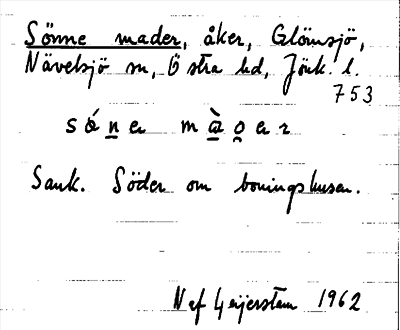 Sönne mader, åker, Glömsjö,
Nävelsjö sn, Östra hd, Jönk. l.
753
sónɐ màgər
Sank. Söder om boningshusen.
N ef Geijerstam 1962